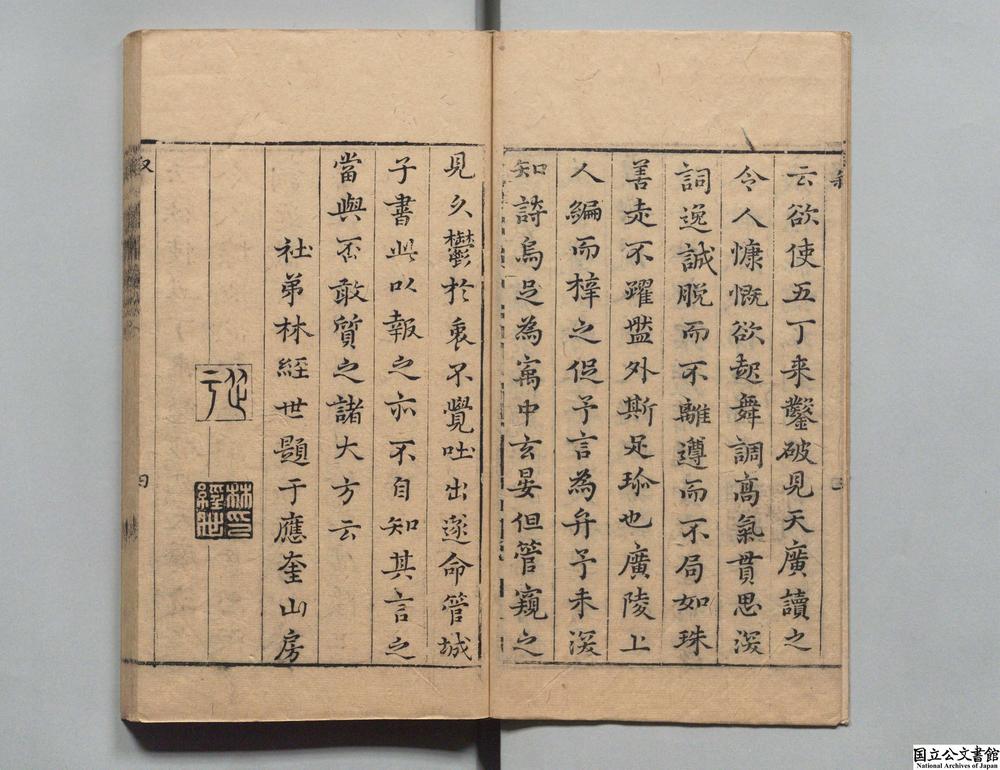 云欲使五丁来鑿破見天廣讀之
令人慷慨欲起舞調高氣貫思深
詞逸誠脱而不離遵而不局如珠
善走不躍盤外斯足珍也廣陵上
人編而梓之促予言為弁予未深
知詩烏足為寓中玄晏但管窺之
見久鬱於衷不覺吐出遂命管城
子書此以報之亦不自知其言之
當與否敢質之諸大方云
社弟林經世題于應奎山房
林印經世
四
国立公文書館
National Archives of Japan